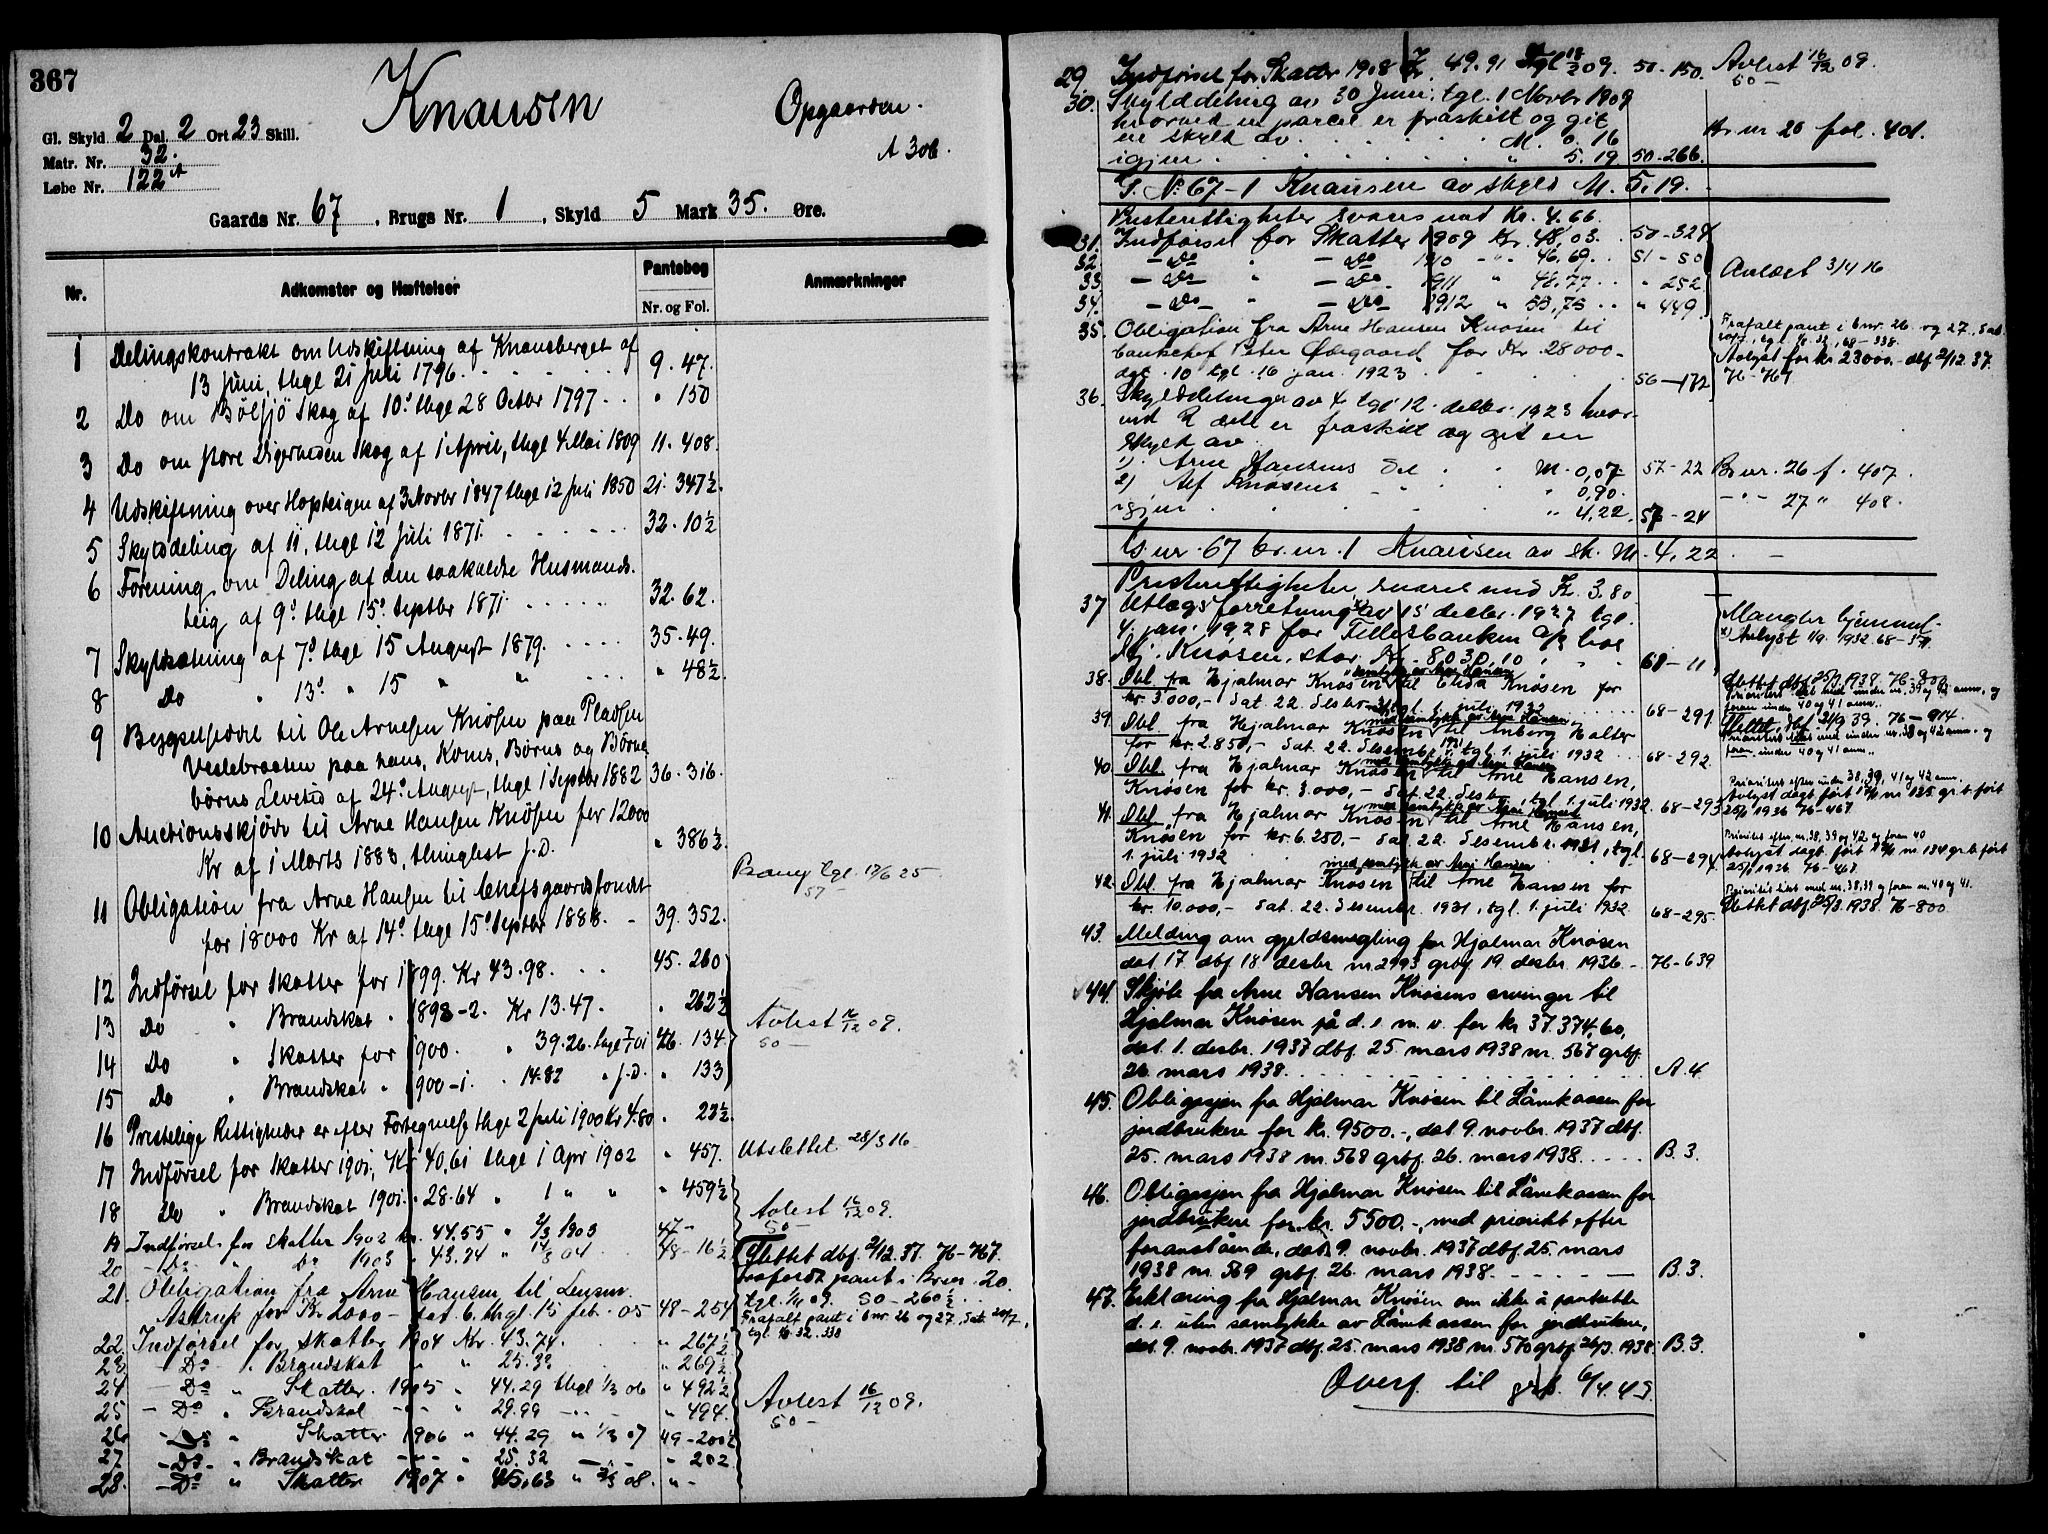 367
Knausen
Opgaarden.
A 306.
Gl. Skyld 2 Dal. 2 Ort 23 Skill.
Matr. Nr. 32.
Løbe Nr. 122 A
Gaards Nr. 67, Brugs Nr. 1, Skyld 5 Mark 35. Øre.
Nr. Adkomster og Hæftelser Pantebog Anmærkninger
Nr. og Fol.
1 Delingskontrakt om Udskiftning af Knausberget af
13 Juni, thgl 21 Juli 1796. 9. 47.
2 Do om Bölsjö Skog af 10' thgl 28 Octbr 1797 " 150
3 Do om store Digerheden Skog af 1 April, thgl 4 Mai 1809 11. 408.
4 Udskiftning over Hopteigen af 3 Novbr 1847 thgl 12 Juli 1850 21. 347½.
5 Skylddeling af 11, thgl 12 Juli 1871. 32. 10½
6 Forening om Deling af den saakaldte Husmands-
teig af 9' thgl 15' Septbr 1871 32. 62.
7 Skyldsætning af 7' thgl 15 August 1879. 35. 49.
8 Do " 13' " 15 " " " 48½
9 Bygselseddel til Ole Arnesen Knösen paa Pladsen
Veslebraaten paa hans, Kones, Børns og Børne-
børns Levetid af 24' August, thgl 1 Septbr 1882 36. 316.
10 Auctionsskjöde til Arne Hansen Knösen for 12000
Kr af 1 Marts 1883, thinglest J.D. " 386½
11 Obligation fra Arne Hansen til Chefsgaardsfondet
for 18000 Kr af 14' thgl 15' Septbr 1888. 39. 352. tgl. 17/6 25
57 -
12 Indførsel for Skatter for 1899. Kr 43.98. 45. 260
13 Do " Brandskat " 1898-2. Kr 13.47. " 262½
14 Do " Skatter for 1900. " 39.26. thgl 7/01 46. 134 Avlest 16/12 09.
50 -
15 Do " Brandskat " 1900-1. " 14.82 " J.D. " 133
16 Prestelige Rettigheder er efter Fortegnelse thgl 2 Juli 1900 Kr 4.80 " 22½
17 Indførsel for Skatter 1901, Kr 40,61 thgl 1 Apr 1902 " 457. Utslettet 28/3 16
18 Do " Brandskat 1901. " 28.64 " 1 " " " 459½ Avlest 16/12 09.
50 -
19 Indførsel for skatter 1902 kr. 44.55 " 2/3 1903 47 -
20 - Do - " Do 1903 " 43.24 " 14/3 04 48 - 16½
21. Obligation fra Arne Hansen til Lensm.
Astrup for Kr. 2000 - dat. 6. thgl. 15 feb. 05 48 - 254
Slettet dbf. 2/12.37. 76-767.
frafaldt pant i Brnr. 20.
tgl. 1/11 09. 50 - 260½
Frafalt pant i bnr. 26 og 27, dat. 20/7,
22 Indførsel for skatter 1904 Kr. 43.74. " 267½
23 - Do - " Brandskat " " 25.32 " 269½
24 - Do " Skatter. 1905 " 44.29 thgl 1/3 06 " 492½
25 - Do " Brandskat - " - " 29.99 - " - " 494. Avlest 16/12 09.
50 -
26 - Do " Skatter 1906 " 44.29 " 1/3 07 49 - 200½
27 - Do - " Brandskat - " - " 25.32 - " - " 202
28. - Do " Skatter 1907 " 45.63 " 2/3 08. " -
29. Indførsel for Skatter 1908 Kr. 49.91 tgl 18/2 09. 50 - 150. Avlest 16/12 09.
50 -
30. Skylddeling av 30 Juni, tgl. 1 Novbr 1909
hvorved en parcel er fraskilt og git
en skyld av M. 0.16 Br nr 20 fol. 401.
igjen " 5.19 50 - 266.
G. No 67 - 1 Knausen av skyld M. 5.19.
Presterettigheter svares med Kr. 4.66.
31. Indførsel for Skatter 1909 Kr. 48,03. 50 - 328
32 - Do " - Do 1910 - " - 46.69. 51 - 50
33 - Do - " - Do. 1911 " 48.77 " 252 Avlest 3/4 16
34. - Do - " - Do - 1912 " 55,75 " 449.
35. Obligation fra Arne Hansen Knøsen til
banksjef Peter Ødegaard for Kr. 28000 -
dat. 10 tgl. 16 jan. 1923 56 - 172
Frafalt pant i bnr. 26 og 27,
Avlyst for kr 23000. - dbf 2/12 37.
76-767
36. Skylddelinger av 4 tgl 12. decbr. 1923 hvor-
ved 2 dele er fraskilt og git en
skyld av
1). Arne Hansens Del M. 0,07 57 - 22 Brnr. 26 f. 407.
2) Alf Knøsens - " 0,90. - " - 27 " 408.
igjen " 4,22. 57 - 24
G.nr. 67 br.nr. 1 Knausen av sk. M. 4,22. -
Presterettigheter svares med Kr. 3.80
37 Utlægsforretning x) av 15 decbr. 1927 tgl.
4. jan. 1928 for Fellesbanken A/S hos
Hj. Knøsen, stor Kr. 8030,10 61 - 11
Mangler hjemmel.
x) Avlyst 1/9. 1932. 68 - 
38. Obl. fra Hjalmar Knøsen med samtykke av Arne Hansen til Elida Knøsen for
kr. 3.000,- dat. 22. desbr. 31 tgl. 1. juli 1932 68 - 291
Slettet dbf 25/3.1938. 76-800
39. Obl. fra Hjalmar Knøsen med samtykke av Arne Hansen til Anborg Halter
for kr. 2.850,- dat. 22. desember 1931, tgl. 1. juli 1932 68 - 292
Slettet, dbf 39. 76 - 914.
40. Obl. fra Hjalmar Knøsen med samtykke av Arne Hansen til Arne Hansen,
Knøsen for kr. 3.000,- dat. 22. desbr., tgl. 1. juli 1932 68 - 293
Prioritet efter under 38, 39, 41 og 42 anm.
41. Obl. fra Hjalmar Knøsen med samtykke av Arne Hansen til Arne Hansen,
Knøsen for kr. 6.250,- dat. 22. desember. 1931, tgl.
1. juli 1932 68 - 294
Prioritet efter nr. 38, 39 og 42 og foran 40
42. Obl. fra Hjalmar Knøsen med samtykke av Arne Hansen til Arne Hansen for
kr. 10.000,- dat. 22. desember. 1931, tgl. 1. juli 1932 68 - 295
Prioritet likt med nr. 38, 39 og foran nr. 40 og 41.
Slettet dbf 25/3. 1938. 76-800
43. Melding om gjeldsmegling for Hjalmar Knøsen
dat. 17. dbf 18. desbr nr 2993 grbf. 19. desbr. 1936. - 76 - 639
44. Skjöte fra Arne Hansen Knøsens arvinger til
Hjalmar Knøsen på d. e. m. v. for kr 37.374,60,
dat. 1. desbr. 1937 dbf. 25. mars 1938 nr. 567 grbf.
26. mars 1938. A. 4.
45. Obligasjon fra Hjalmar Knøsen til Lånekassen for
jordbrukere for kr. 9500.-, dat 9. novbr. 1937 dbf.
25. mars 1938 nr. 568 grbf. 26. mars 1938. B. 3.
46. Obligasjon fra Hjalmar Knøsen til Lånekassen for
jordbrukere for kr. 5500.-, med prioritet efter
foranstående, dat. 9. novbr. 1937 dbf. 25. mars
1938 nr. 569 grbf. 26. mars 1938. B. 3.
47. Erklæring fra Hjalmar Knøsen om ikke å pantsette
d. e. uten samtykke av Lånekassen for jordbrukere,
dat. 9. novbr. 1937 dbf. 25. mars 1938 nr 570 grbf. 26/3. 1938. B. 3.
Overf. til grb. 6/4.45.